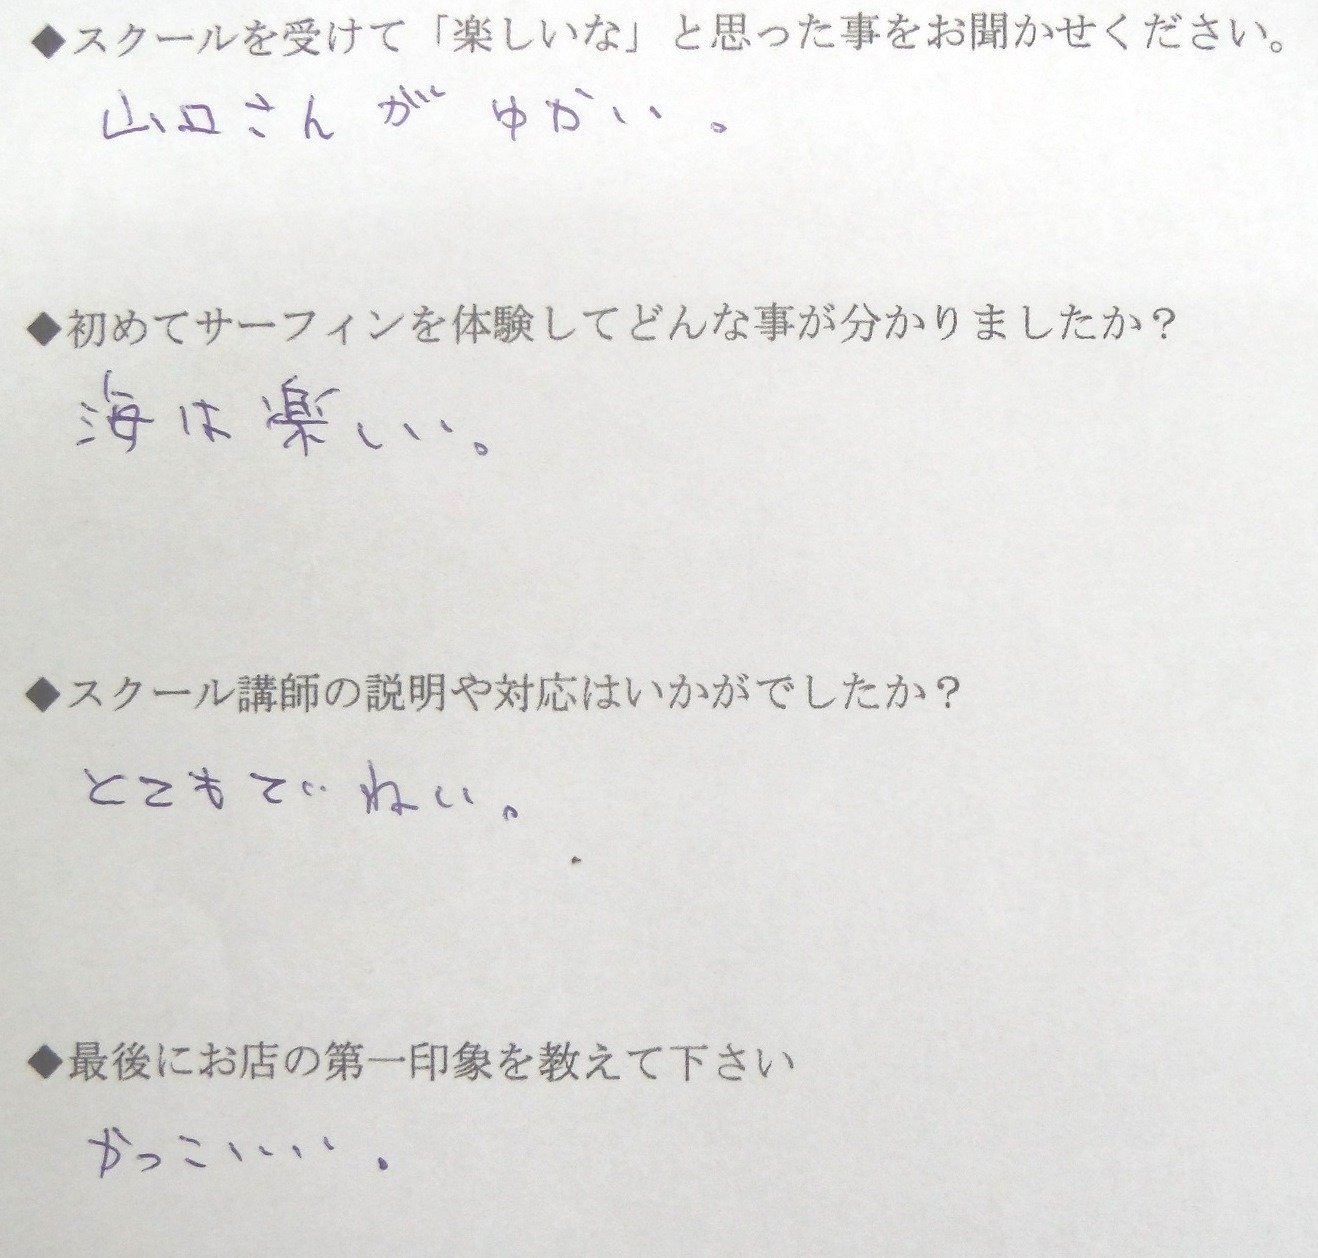 ◆スクールを受けて「楽しいな」と思った事をお聞かせください。
山口さんがゆかい。
◆初めてサーフィンを体験してどんな事が分かりましたか？
海は楽しい。
◆スクール講師の説明や対応はいかがでしたか？
とてもていねい。
◆最後にお店の第一印象を教えて下さい
かっこいい。